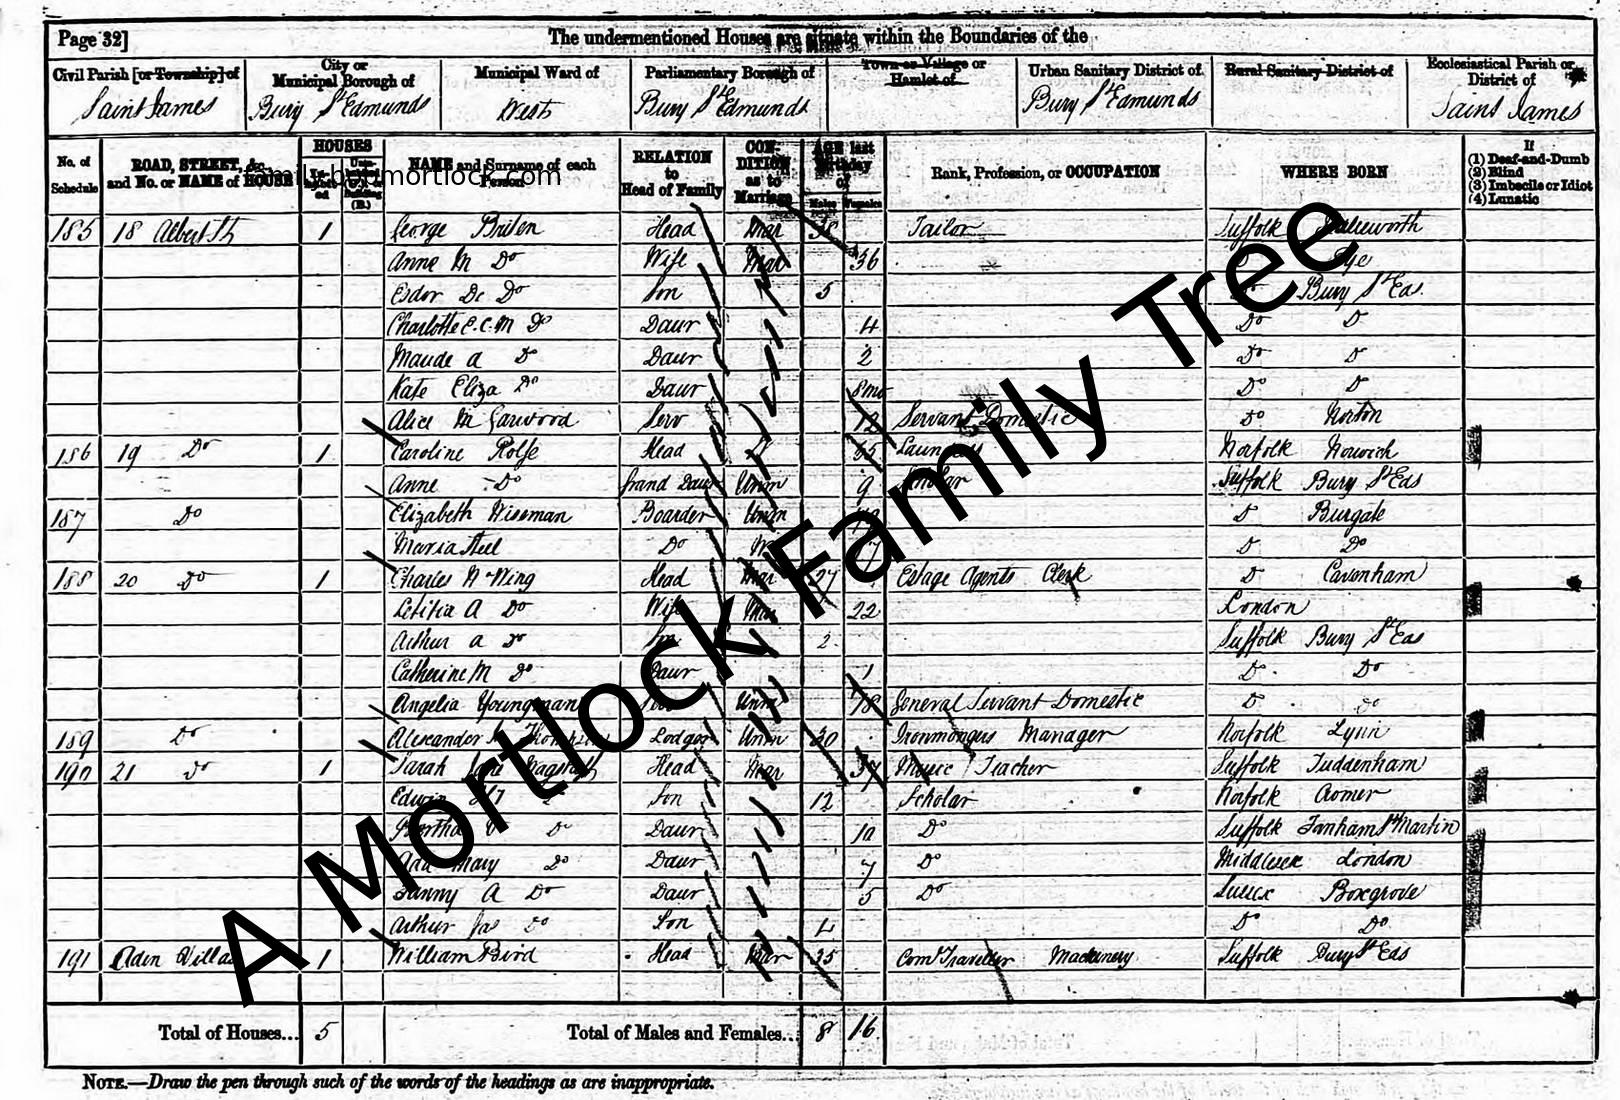 Page 32]
The undermentioned Houses are situate within the Boundaries of the
Civil Parish [or Township] of
City or Municipal Borough of
Municipal Ward of
Parliamentary Borough of
Town or Village or Hamlet of
Urban Sanitary District of
Rural Sanitary District of
Ecclesiastical Parish or District of
Saint James
Bury St Edmunds
West
Bury St Edmunds
Bury St Edmunds
Saint James
No. of Schedule
ROAD, STREET, &c. and No. or NAME of HOUSE
HOUSES
NAME and Surname of each Person
RELATION to Head of Family
CONDITION as to Marriage
AGE last Birthday of
Males
Females
Rank, Profession, or OCCUPATION
WHERE BORN
If
(1) Deaf-and-Dumb
(2) Blind
(3) Imbecile or Idiot
(4) Lunatic
family.bymortlock.com
185 18 Albert St 1 George Head Mar 38 Tailor Suffolk
Anne M Do Wife Mar 36 Do Eye
Do Son 5 Do Bury St Eds.
Charlotte E.C.M Do Daur 4 Do Do
Maude A Do Daur 2 Do Do
Kate Eliza Do Daur 8mo Do Do
Alice M Garwood Serv 12 Servant Domestic Do Norton
186 19 Do 1 Caroline Rolfe Head Norfolk Norwich
Anne Do Grand Daur Unm 9 Scholar Suffolk Bury St Eds
187 Do Elizabeth Wiseman Boarder Unm Do Burgate
Maria Steel Do Do Do
188 20 Do 1 Charles N Wing Head Mar 27 Estage Agents Clerk Do Cavenham
Letitia A Do Wife Mar 22 London
Arthur A Do Son 2 Suffolk Bury St Eds
Catherine M Do Daur 1 Do Do
Angelia Youngman Unm 18 General Servant Domestic Do Do
189 Do Alexander Lodger Unm 30 Ironmongers Manager Norfolk Lynn
190 21 Do 1 Sarah Jane Wagstaff Head Mar 37 Music Teacher Suffolk Tuddenham
Edwin Son 12 Scholar Norfolk
Bertha Do Daur 10 Do Suffolk Fornham St Martin
Ada Mary Do Daur 7 Do Middlesex London
Fanny A Do Daur 5 Do Sussex Boxgrove
Arthur Jas Do Son 4 Do Do
191 Aden Villa 1 William Bird Head Mar 35 Coml Traveller Machinery Suffolk Bury St Eds
A Mortlock Family Tree
Total of Houses... 5
Total of Males and Females... 8 16
NOTE.—Draw the pen through such of the words of the headings as are inappropriate.